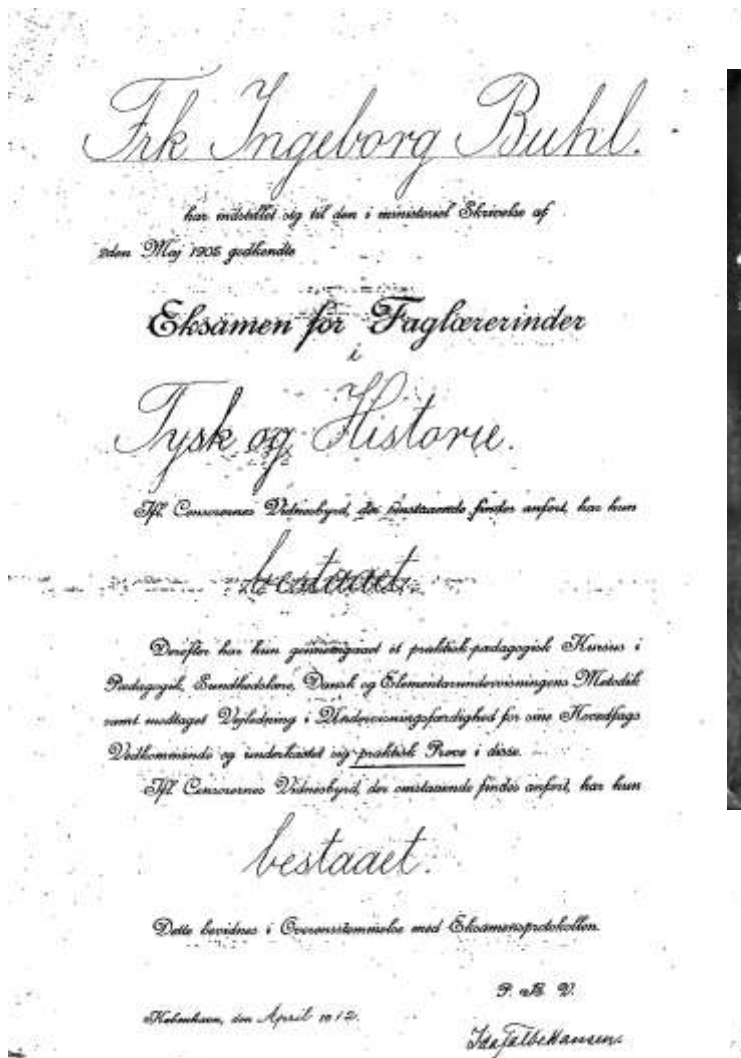 Frk Ingeborg Buhl.
har indstillet sig til den i ministeriel Skrivelse af
2den Maj 1905 godkendte
Eksamen for Faglærerinder
i
Tysk og Historie.
Ifl. Censorernes Vidnesbyrd, der omstaaende findes anført, har hun
bestaaet.
Derefter har hun gennemgaaet et praktisk-pædagogisk Kursus i
Pædagogik, Sundhedslære, Dansk og Elementærundervisningens Metodik
samt modtaget Vejledning i Undervisningsfærdighed for sine Hovedfags
Vedkommende og underkastet sig praktisk Prøve i disse.
Ifl. Censorernes Vidnesbyrd, der omstaaende findes anført, har hun
bestaaet.
Dette bevidnes i Overensstemmelse med Eksamensprotokollen.
P. B. V.
København, den April 1912.
Ida Falbe Hansen.